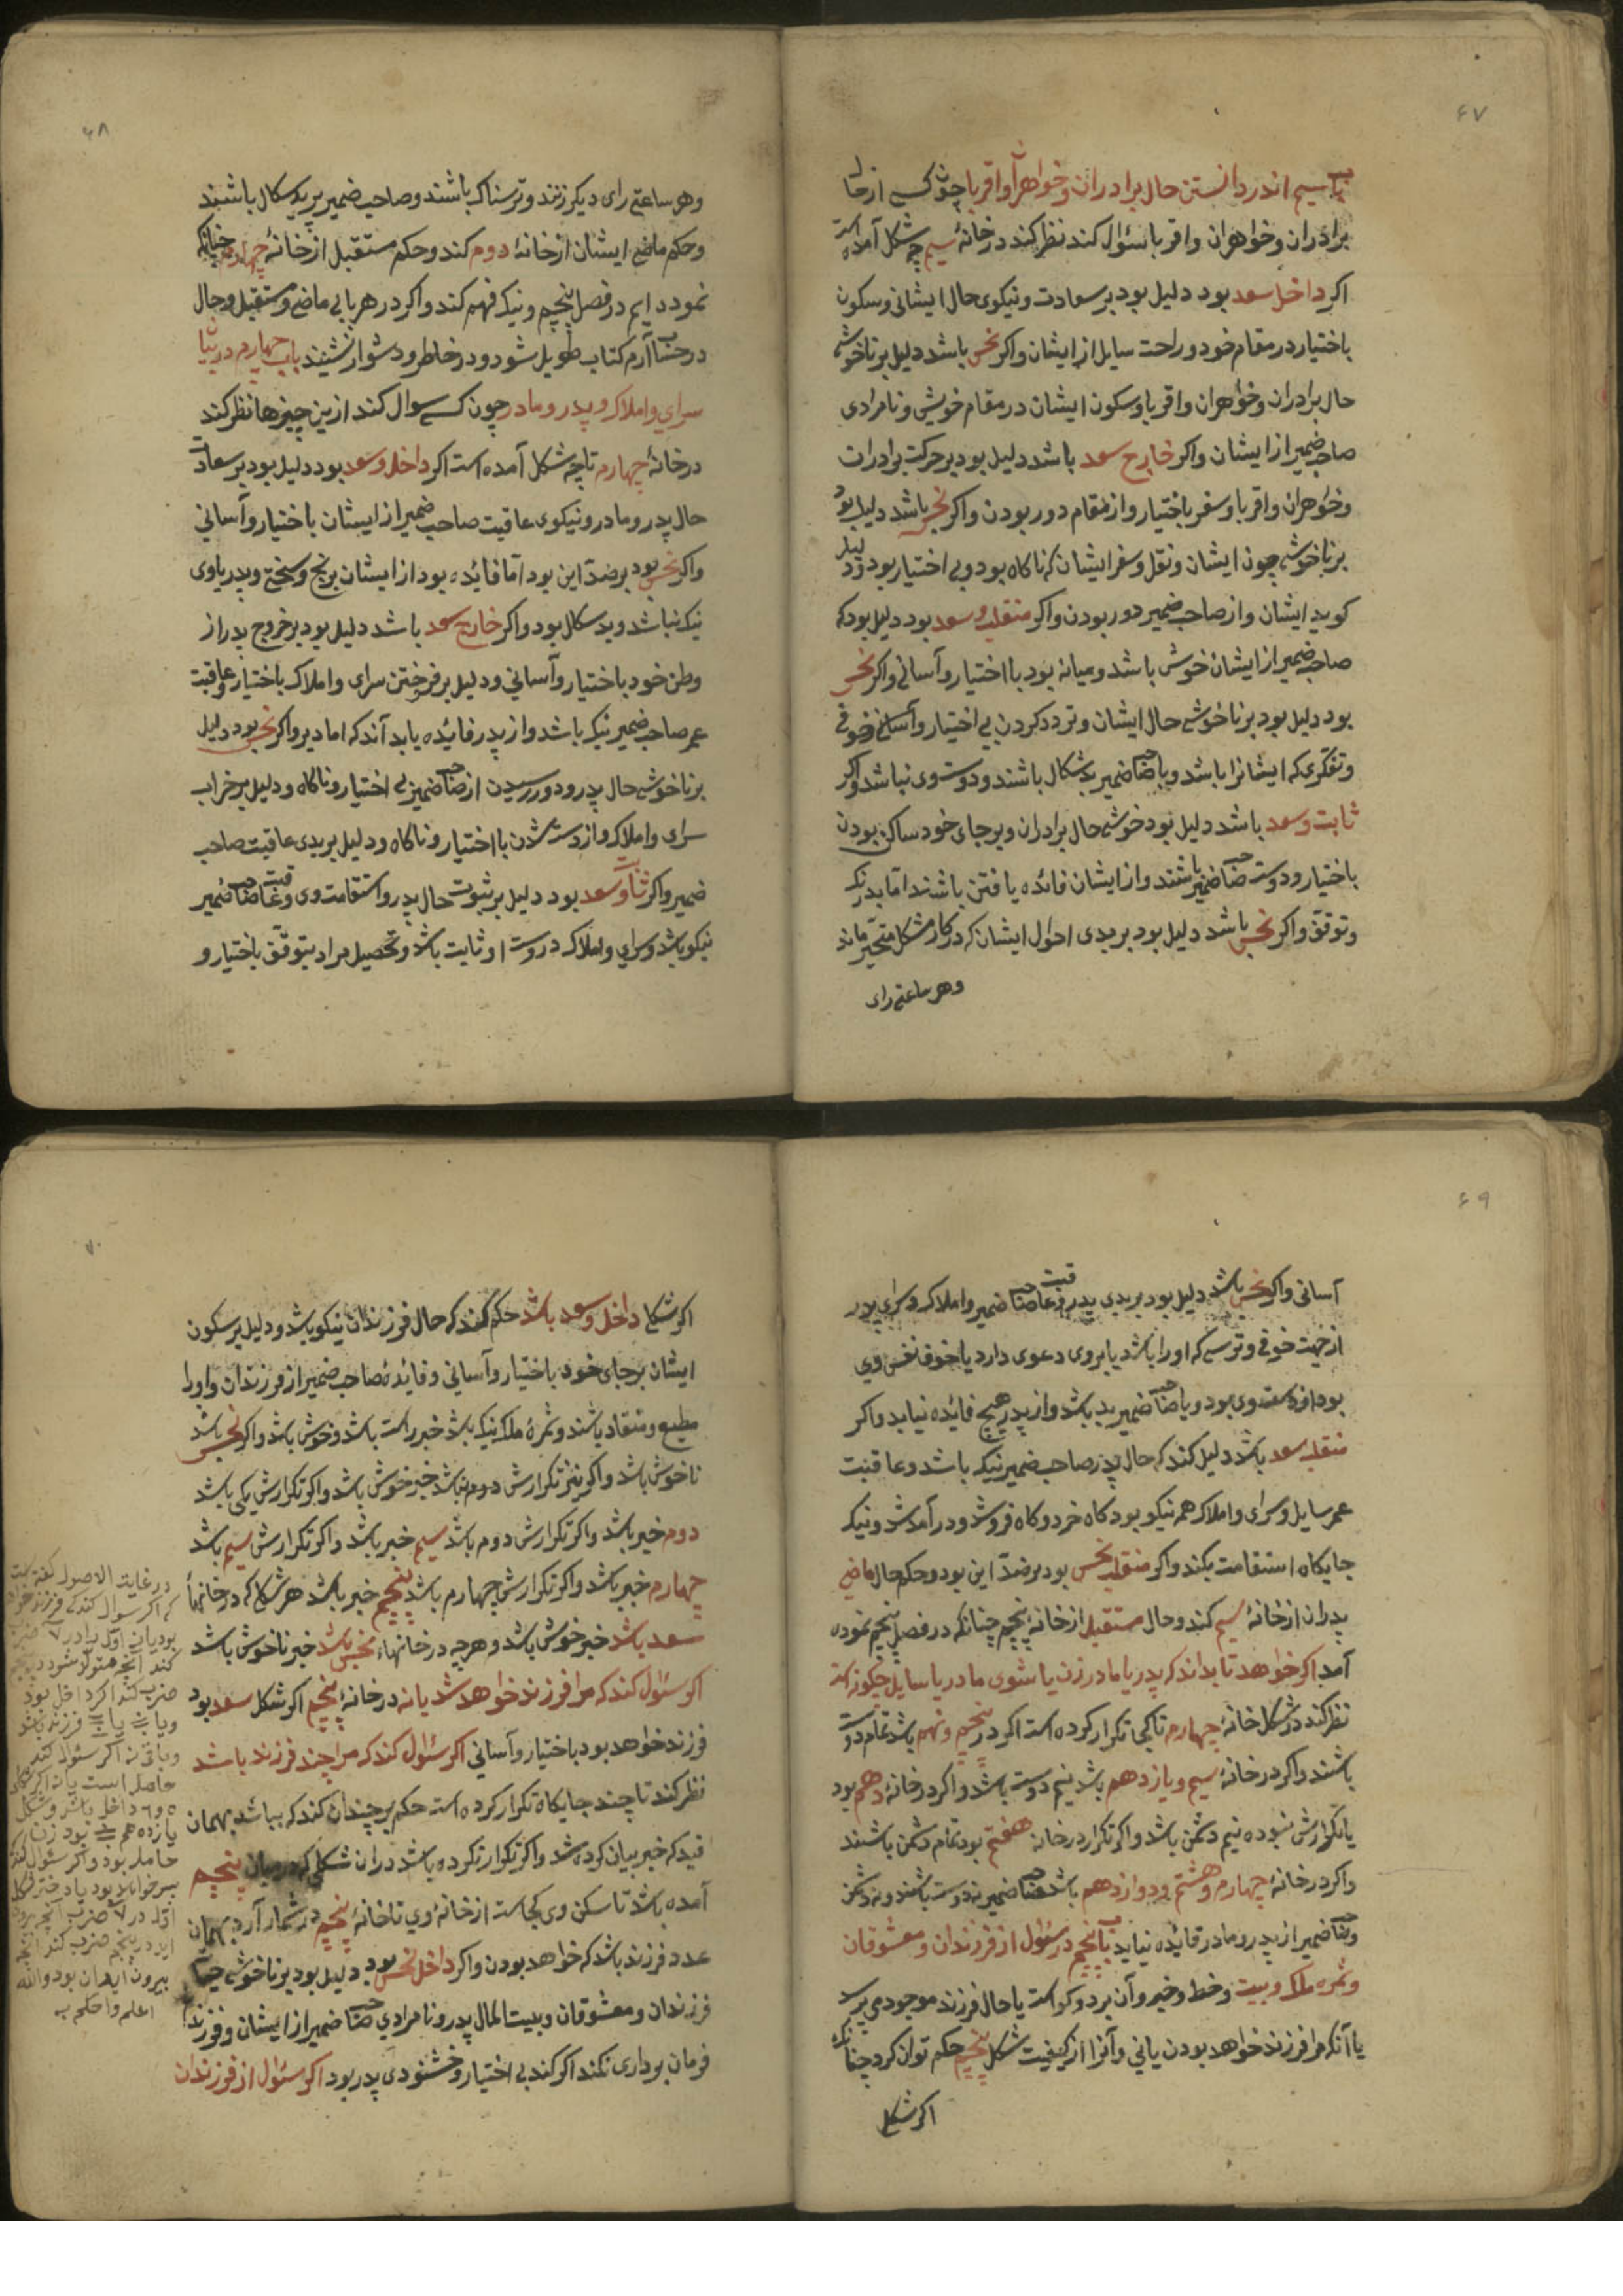 ۶۷
باب سیم اندر دانستن حال برادران و خواهران و اقربا چون کسی از حال
برادران و خواهران و اقربا سئوال کند نظر کند در خانهٔ سیم چه شکل آمده است
اکر داخل سعد بود دلیل بود بر سعادت و نیکوی حال ایشانی و سکون
باختیار در مقام خود و راحت سایل از ایشان و اکر نحس باشد دلیل بر ناخوشی
حال برادران و خوٰهران و اقربا و سکون ایشان در مقام خویش و نامرادی
صاحب ضمیر از ایشان و اکر خارج سعد باشد دلیل بود بر حرکت برادران
و خوٰهران و اقربا و سفر باختیار و از مقام دور بودن و اکر نحس باشد دلیل بود
بر ناخوشی چون ایشان و نقل و سفر ایشان که ناکاه بود و بی اختیار بود و دلیل
کوید ایشان و از صاحب ضمیر دور بودن و اکر منقلب و سعد بود دلیل بود که
صاحب ضمیر از ایشان خوش باشد و میانه بود با اختیار و آسانی و اکر نحس
بود دلیل بود بر ناخوشی حال ایشان و تردد کردن بی اختیار و آسانی و خوفی
و تفکری که ایشانرا باشد و با صاحب ضمیر بدسکال باشند و دوست وی نباشد و اکر
ثابت و سعد باشد دلیل بود خوشی حال برادران و بر جای خود ساکن بودن
باختیار و دوست صاحب ضمیر باشند و از ایشان فائده یافتن باشند اما بدرنک
و توقف و اکر نحس باشد دلیل بود بر بدی احوال ایشان که در کار مشکل متحیر ماند
و هر ساعتی رای
۶۸
و هر ساعتی رای دیکر زنند و ترسناک باشند و صاحب ضمیر بر بدسکال باشند
و حکم ماضی ایشان از خانهٔ دوم کند و حکم مستقبل از خانهٔ چهارم چنانکه
نموده ایم در فصل پنجم و نیک فهم کند و اکر در هر بابی ماضی و مستقبل و حال
در حساب آرم کتاب طویل شود و در خاطر و دشوار نشیند باب چهارم در بیان
سرای و املاک و پدر و مادر چون کسی سوال کند ازین چیزها نظر کند
در خانهٔ چهارم تا چه شکل آمده است اکر داخل و سعد بود دلیل بود بر سعادت
حال پدر و مادر و نیکوی عاقبت صاحب ضمیر از ایشان باختیار و آسانی
و اکر نحس بود بر ضد این بود اما فائده بود از ایشان برنج و سختی و پدر باوی
نیک نباشد و بدسکال بود و اکر خارج سعد باشد دلیل بود بر خروج پدر از
وطن خود باختیار و آسانی و دلیل بر فرختن سرای و املاک باختیار و عاقبت
عمر صاحب ضمیر نیک باشد و از پدر فائده یابد آندکه اما دیر و اکر نحس بود دلیل
بر ناخوشی حال پدر و دور رسیدن از صاحب ضمیر بی اختیار و ناکاه و دلیل بر خراب
سرای و املاک و از دست شدن با اختیار و ناکاه و دلیل بر بدی عاقبت صاحب
ضمیر و اکر ثابت و سعد بود دلیل بر ثبوت حال پدر و استقامت وی و عاقبت صاحب ضمیر
نیکو باشد و سرای و املاک در دست او ثابت باشد و تحصیل مراد بتوقف باختیار و
۶۹
آسانی و اکر نحس باشد دلیل بود بر بدی پدر و عاقبت صاحب ضمیر و املاک و سرای پدر
از جهت خوفی و ترسی که اورا باشد یا بروی دعوی دارد یا خوف نفس وی
بود وی بود و با صاحب ضمیر بد باشد و از پدر هیچ فائده نیابد و اکر
منقلب سعد باشد دلیل کند که حال پدر صاحب ضمیر نیک باشد و عاقبت
عمر سایل و سرای و املاک هم نیکو بود کاه خرد و کاه فروشد و درآمدش و نیک
جایکاه استقامت بکند و اکر منقلب نحس بود بر ضد این بود و حکم حال ماضی
پدران از خانهٔ سیم کند و حال مستقبل از خانهٔ پنجم چنانکه در فصل پنجم نموده
آمد اکر خواهد تا بداند که پدر یا مادر زن یا شوی مادر یا سایل چکونه است
نظر کند در شکل خانهٔ چهارم تا کجا تکرار کرده است اکر در پنجم و نهم باشد تمام دوست
باشند و اکر در خانهٔ سیم و یازدهم باشد نیم دوست باشد و اکر در خانهٔ دهم بود
یا تکرارش نبوده نیم دشمن باشد و اکر تکرار در خانه هفتم بود تمام دشمن باشند
و اکر در خانهٔ چهارم و هشتم و دوازدهم باشد صاحب ضمیر نه دوست باشند و نه دشمن
و صاحب ضمیر از پدر و مادر فائده نیابد باب پنجم در سئوال از فرزندان و معشوقان
و ثمره ملک و بیت و خط و خبر و آن بر دو کونه است یا حال فرزند موجود می پرسد
یا آنکه مرا فرزند خواهد بودن یانی و آنرا از کیفیت شکل پنجم حکم توان کرد چنانکه
اکر شکل
۷۰
اکر شکل داخل و سعد باشد حکم کند که حال فرزندان نیکو باشد و دلیل بر سکون
ایشان بر جای خود باختیار و آسانی و فائدهٔ صاحب ضمیر از فرزندان و اورا
مطیع و منقاد باشند و ثمرهٔ ملک نیک باشد خبر راست باشد و خوش باشد و اکر نحس باشد
ناخوش باشد و اکر نیز تکرارش دوم باشد خبر خوش باشد و اکر تکرارش یکی باشد
دوم خبر باشد و اکر تکرارش دوم باشد سیم خبر باشد و اکر تکرارش سیم باشد
چهارم خبر باشد و اکر تکرارش چهارم باشد پنجم خبر باشد هر شکلی که در خانها
سعد باشد خبر خوش باشد و هرچه در خانهاء نحس باشد خبر ناخوش باشد
اکر سئول کند که مرا فرزند خواهد شد یا نه در خانهٔ پنجم اکر شکل سعد بود
فرزند خواهد بود باختیار و آسانی اکر سئوال کند که مرا چند فرزند باشد
نظر کند تا چند جایکاه تکرار کرده است حکم بر چندان کند که بباشد بهمان
قید که خبر بیان کرده شد و اکر تکرار نکرده باشد در ان شکلی که در میان پنجم
آمده باشد تا سکن وی کجاست از خانهٔ وی تا خانهٔ پنجم در شمار آرد بهمان
عدد فرزند باشد که خواهد بودن و اکر داخل نحس بود دلیل بود بر ناخوشی حیات
فرزندان و معشوقان و بیت المال پدر و نامرادی صاحب ضمیر از ایشان و فرزند
فرمان برداری نکند اکر کند بی اختیار و خشنودی پدر بود اکر سئوال از فرزندان
در غایة الاصول کفته است
که اکر سوال کند که فرزند خواهد
بود یانی اول را در ۷ ضرب
کند آنچه متولد شود در پنجم
ضرب کند اکر داخل بود
فرزند نباشد
و باقی نه اکر سئوال کند
حامل است یا نه اکر شکل
۵ و ۶ داخل باشد و شکل
یازدهم بود زن
حامله بود و اکر سئوال کند
پسر خواهد بود یا دختر شکل
اول در ۷ ضرب آنچه بیرون
آید در پنجم ضرب کند آنچه
بیرون آید همان بود والله
اعلم و احکم